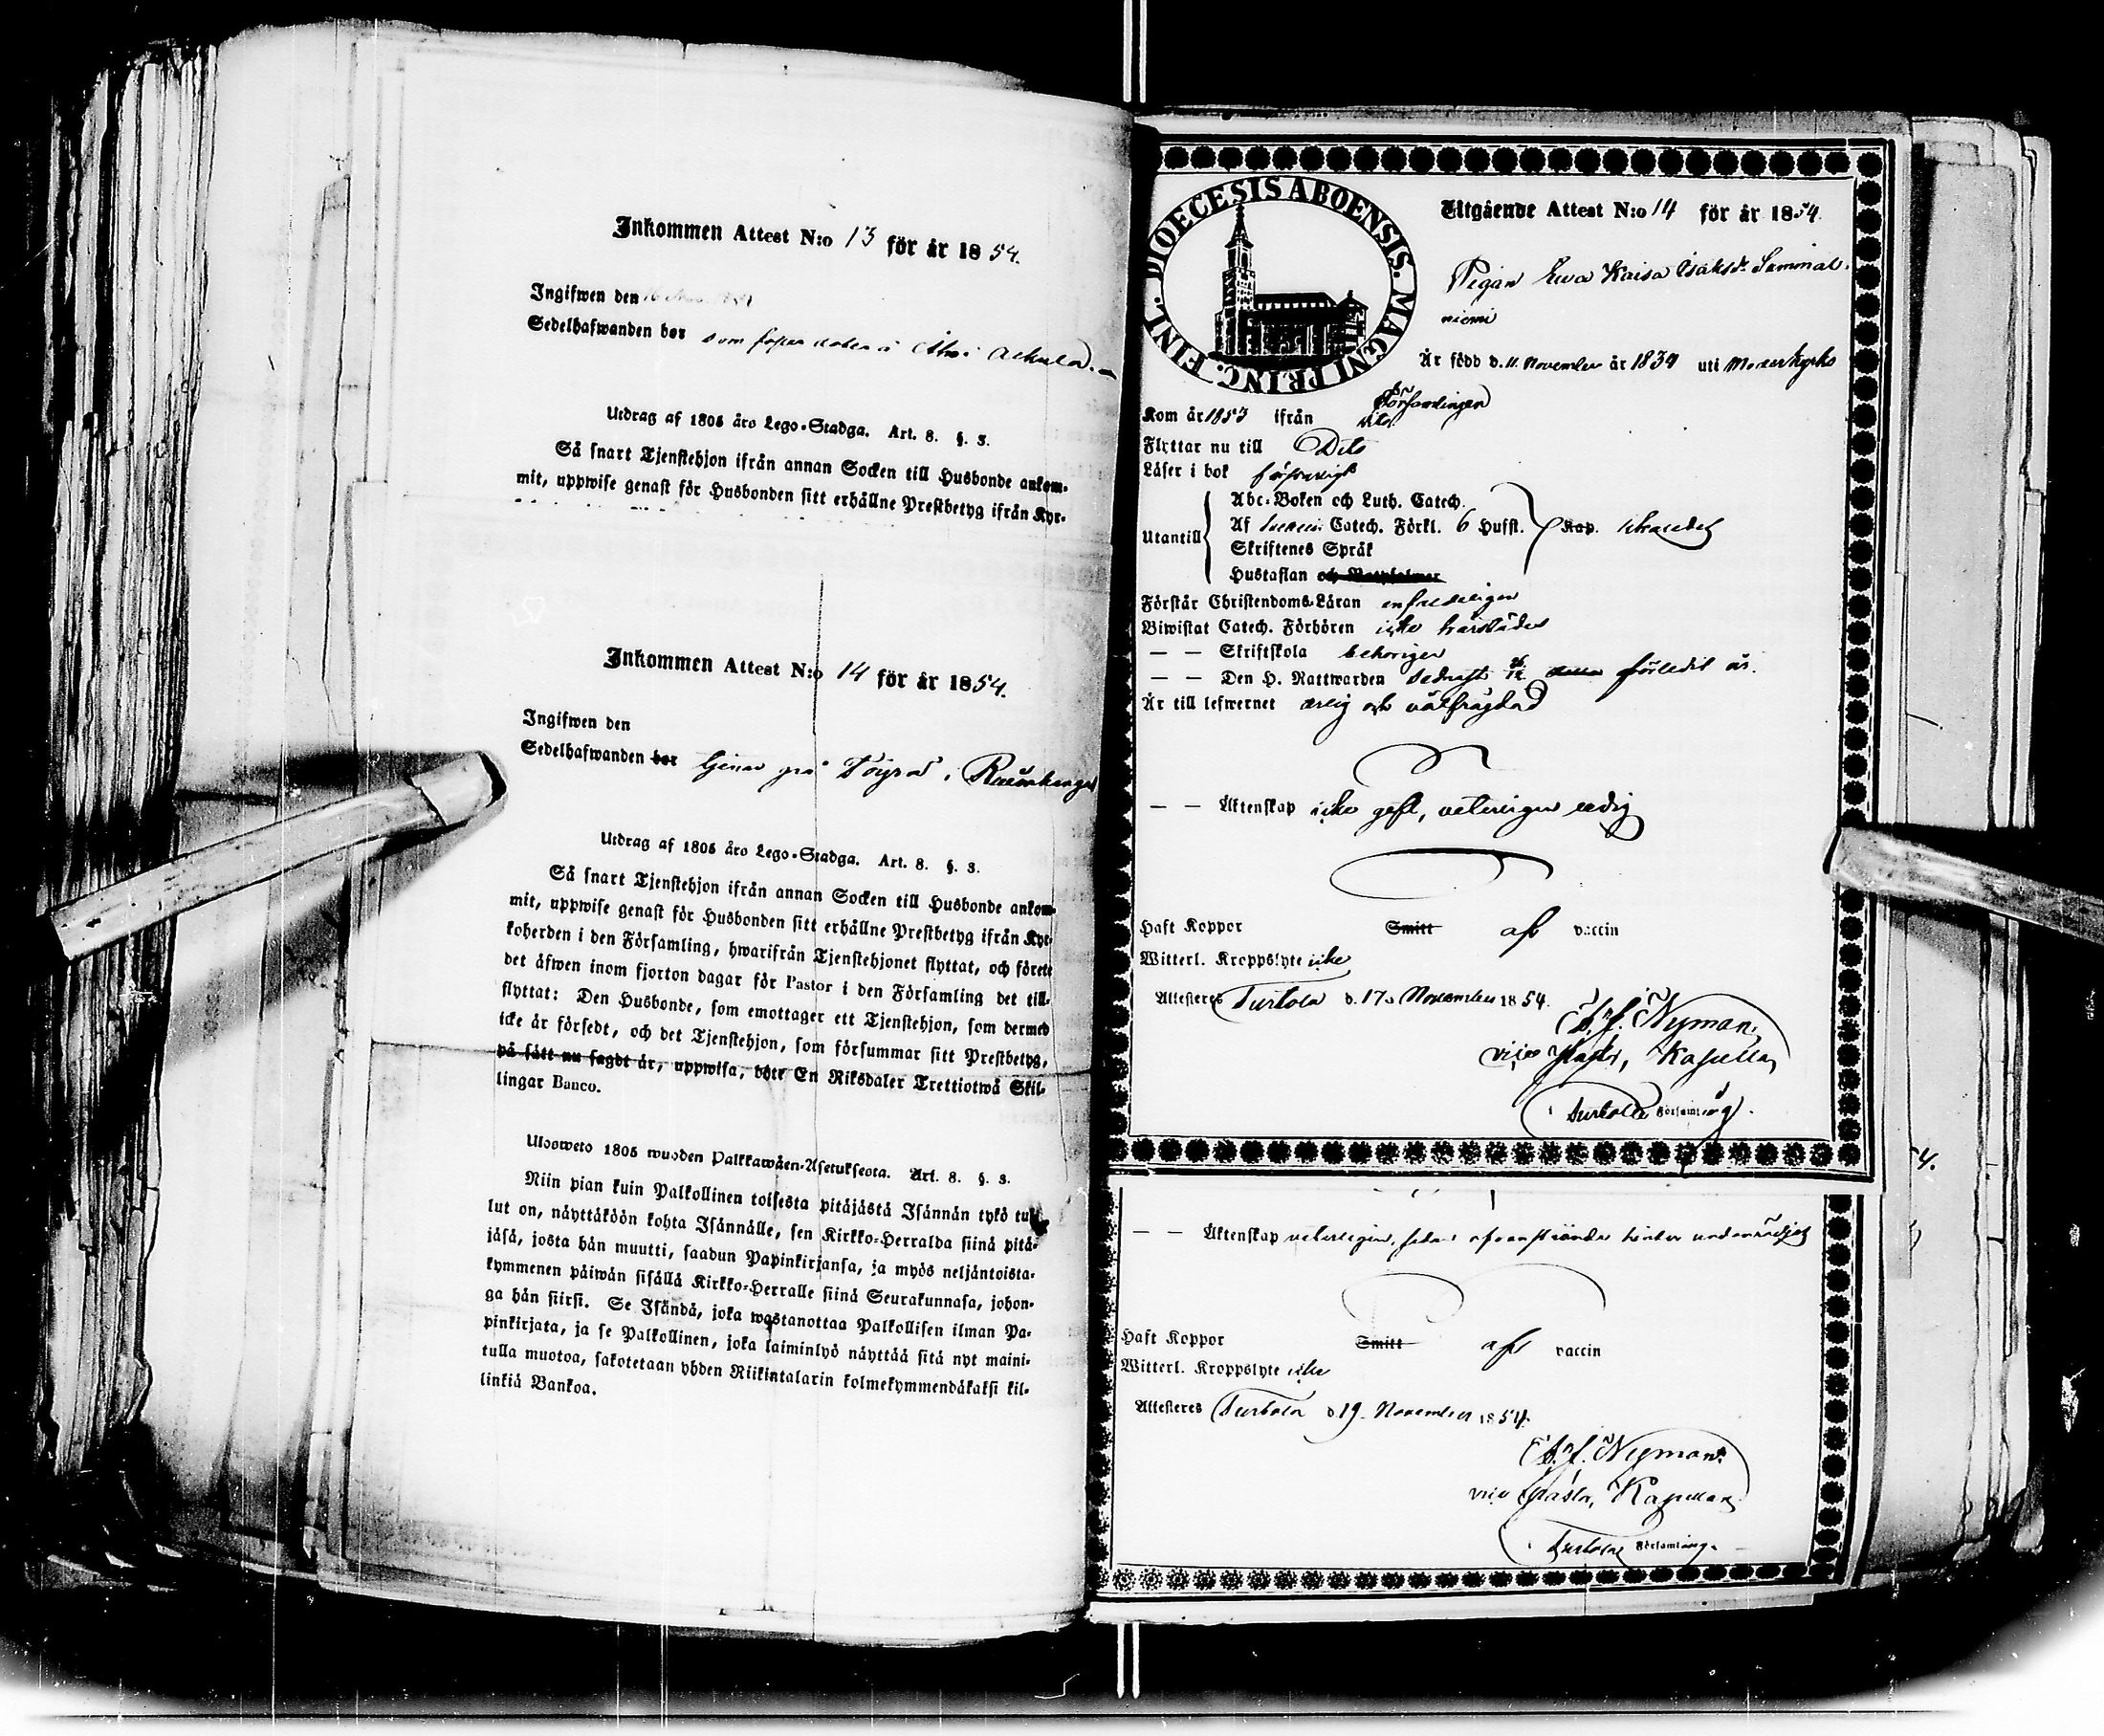 Inkommen Attest N:o 13 för år 1854.
Ingifwen den
Sedelhafwanden bor som
Utdrag af 1805 års Lego-Stadga. Art. 8. §. 3.
Så snart Tjenstehjon ifrån annan Socken till Husbonde ankom-
mit, uppwise genast för Husbonden sitt erhållne Prestbetyg ifrån Kyr-
Inkommen Attest N:o 14 för år 1854.
Ingifwen den
Sedelhafwanden bor tjenar på
Utdrag af 1805 års Lego-Stadga. Art. 8. §. 3.
Så snart Tjenstehjon ifrån annan Socken till Husbonde ankom-
mit, uppwise genast för Husbonden sitt erhållne Prestbetyg ifrån Kyr-
koherden i den Församling, hwarifrån Tjenstehjonet flyttat, och förete
det äfwen inom fjorton dagar för Pastor i den Församling det till-
flyttat: Den Husbonde, som emottager ett Tjenstehjon, som dermed
icke är försedt, och det Tjenstehjon, som försummar sitt Prestbetyg,
på sätt nu sagdt är, uppwisa, böte En Riksdaler Trettiotwå Skil-
lingar Banco.
Ulosweto 1805 wuoden Palkkawäen-Asetuksesta. Art. 8. §. 3.
Niin pian kuin Palkollinen toisesta pitäjästä Isännän tykö tul-
lut on, näyttäköön kohta Isännälle, sen Kirkko-Herralda siinä pitä-
jäsä, josta hän muutti, saadun Papinkirjansa, ja myös neljäntoista-
kymmenen päiwän sisällä Kirkko-Herralle siinä Seurakunnasa, johon-
ga hän siirsi. Se Isändä, joka wastanottaa Palkollisen ilman Pa-
pinkirjata, ja se Palkollinen, joka laiminlyö näyttää sitä nyt maini-
tulla muotoa, sakotetaan yhden Riikintalarin kolmekymmendäkaksi kil-
linkiä Bankoa.
DIOECESIS ABOENSIS. MAGNI PRINC. FINL.
Utgående Attest N:o 14 för år 1854.
Pigan Ewa Kaisa Isaksd. Sammal-
niemi
Är född d. 11 November år 1834 uti Moderkyrko
Församlingen
Kom år 1853 ifrån dito
Flyttar nu till Dito
Läser i bok försvarligt
Utantill
Abc-Boken och Luth. Catech.
Af Catech. Förkl. 6 Hufst. Kap.
Skriftenes Språk
Hustaflan och Botpsalmer
Förstår Christendoms-Läran enfaldeligen
Biwistat Catech. Förhören icke härstädes
— — Skriftskola behörigen
— — Den H. Nattwarden sednast 26/12 förledit år.
Är till lefwernet ärlig och välfrägdad
— — Äktenskap icke gift, veterligen ledig
Haft Koppor Smitt af vaccin
Witterl. Kroppslyte icke
Attesteres Turtola d. 17 November 1854.
Nyman
vice Pastor, Kapellan
Turtola Församling.
— — Äktenskap veterligen
Haft Koppor Smitt af vaccin
Witterl. Kroppslyte icke
Attesteres Turtola d 19 November 1854.
Nyman
vice Pastor, Kapellan
Turtola Församling.